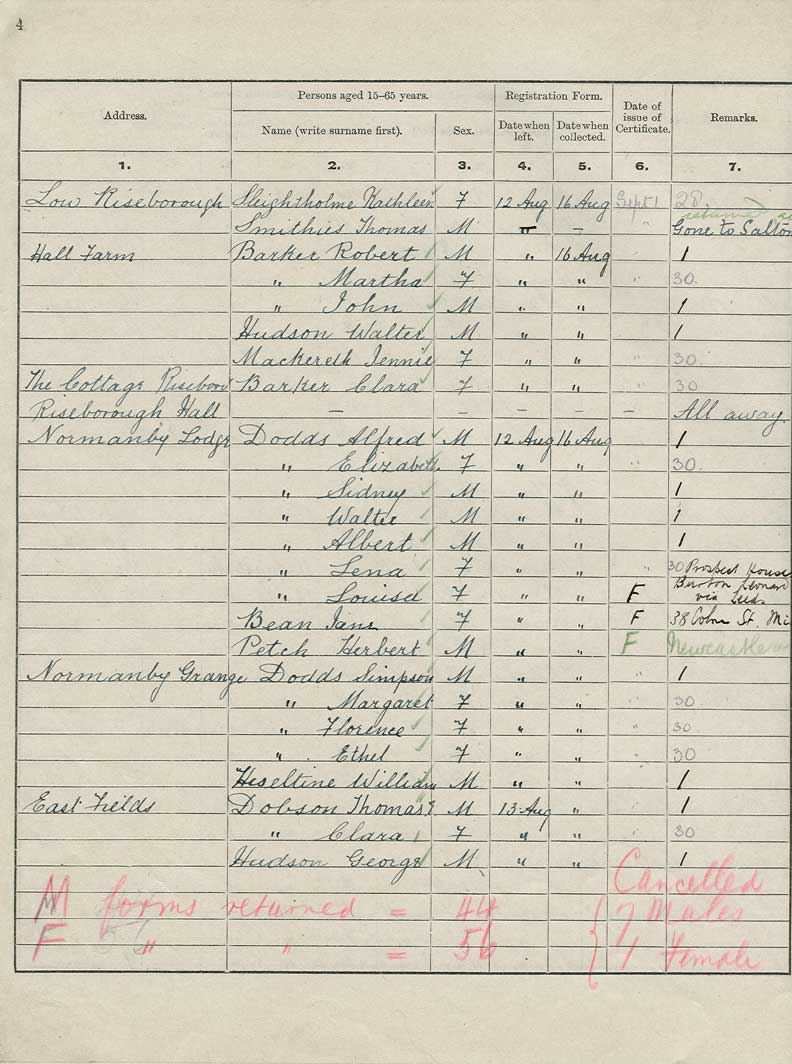 4
Persons aged 15–65 years. Registration Form.
Address. Name (write surname first). Sex. Date when left. Date when collected. Date of issue of Certificate. Remarks.
1. 2. 3. 4. 5. 6. 7.
Low Riseborough Sleightholme Kathleen F 12 Aug 16 Aug Sept 1 28.
Smithies Thomas M " – " Gone to Salton
Hall Farm Barker Robert M " 16 Aug 1
" Martha F " " " 30.
" John M " " 1
Hudson Walter M " " 1
Mackereth Jennie F " " " 30.
The Cottage Riseboro Barker Clara F " " " 30
Riseborough Hall – – – – – All away.
Normanby Lodge Dodds Alfred M 12 Aug 16 Aug 1
" Elizabeth F " " " 30.
" Sidney M " " 1
" Walter M " " 1
" Albert M " " 1
" Lena F " " " 30 Prospect House
" Louisa F " " F Burton Leonard via Leeds
Bean Jane F " " F 38 St. Mi
Petch Herbert M " " F Newcastle
Normanby Grange Dodds Simpson M " " " 1
" Margaret F " " " 30
" Florence F " " " 30
" Ethel F " " " 30
Heseltine William M " " 1
East Fields Dobson Thomas M 13 Aug " 1
" Clara F " " " 30
Hudson George M " " 1
Cancelled
M forms returned = 44 { 7 Males
F " " = 56 1 Female